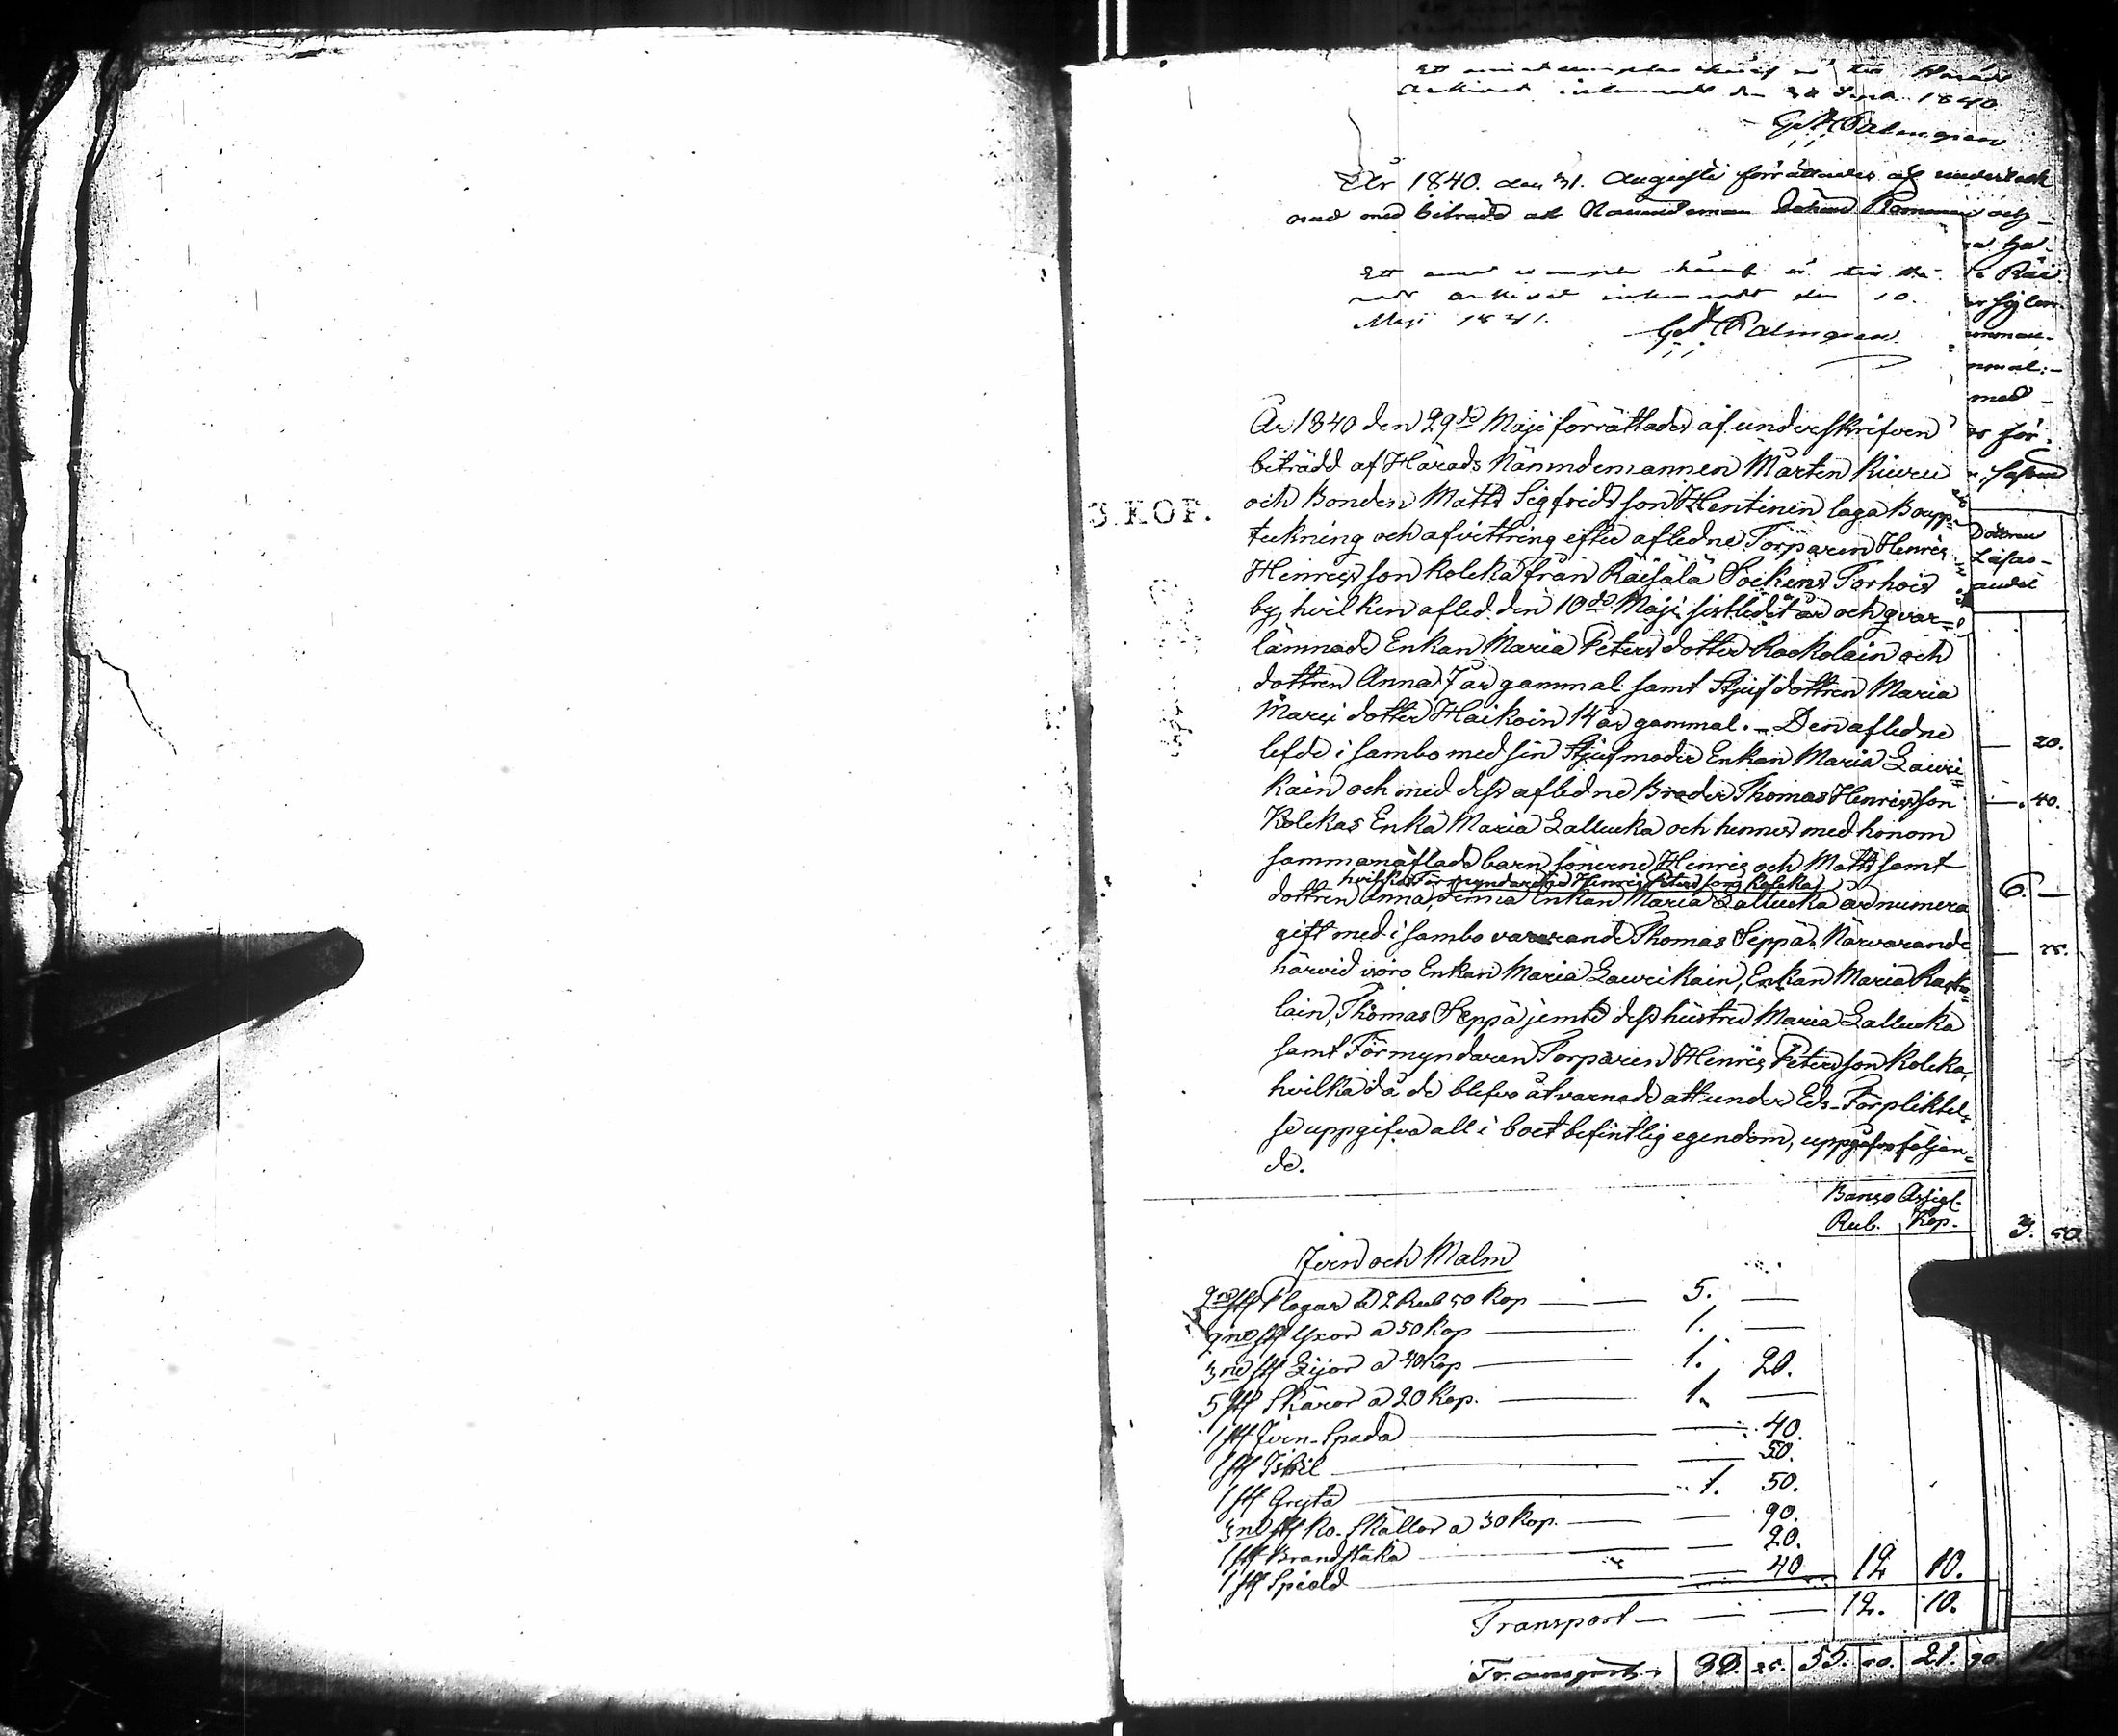 Ett annat exemplar häraf är till Härads
Arkivet inlemnadt den 30 Sept. 1840.
Palmgren
År 1840. den 31. Augusti förrättades af underteck
nad med biträde af Nämndeman Johan och
Ett annat exemplar häraf är till Hä-
rads Arkivet inlemnadt den 10.
Maji 1841.
Palmgren.
3. KOP.
År 1840 den 29de Maji förrättades af underskrifven
biträdd af Härads Nämndemannen Mårten Kiuru
och Bonden Matts Sigfridsson Hentinen laga Boupp-
teckning och afvittring efter aflidne Torparen Henric
Henricsson Kolcka från Räisälä Sockens Torhois
by, hvilken afled den 10de Maji sistledit år och qvar=
lämnade Enkan Maria Petersdotter Rockolain och
dottren Anna 7 år gammal samt Stjufdottren Maria
Marci dotter Haikoin 14 år gammal. - Den aflidne
lefde i sambo med sin Stjufmoder Enkan Maria Lauri=
kain och med dess aflidne Broder Thomas Henricsson
Kolckas Enka Maria Lallucka och hennes med honom
sammanaflade barn sönerne Henric och Matts samt
hvilkas Förmyndare är Henric Petersson Kolcka
dottren Anna, denna Enkan Maria Lallucka är numera
gift med i sambo varande Thomas Seppä. Närvarande
härvid voro Enkan Maria Laurikain, Enkan Maria Rocko=
lain, Thomas Seppä jemte dess hustru Maria Lallucka
samt Förmyndaren Torparen Henric Petersson Kolcka,
hvilka då de blefvo åtvarnade att under Eds-Förpliktel=
se uppgifva all i boet befintlig egendom, uppgåfvo följan=
de.
Banco Assigt.
Rub. Kop.
Jern och Malm
2ne st Plogar a 2 Rub 50 Kop — — 5. —
2ne st Yxor a 50 Kop — 1. —
3ne st Lijor a 40 Kop — 1. 20.
5 st Skäror a 20 Kop. — 1. —
1 st Jern-Spada — — 40.
1 st Isbil — — 50.
1 st Gryta — 1. 50.
3ne st Ko-Skällor a 30 Kop. — — 90.
1 st Brandstaka — — 20.
1 st Spiäld — — 40 12 10.
Transport — — — 12. 10.
Dottren
Lifas-
andel
20.
40.
6. —
75.
3. 50.
Transport — 39. 25. 55. 50. 21. 90